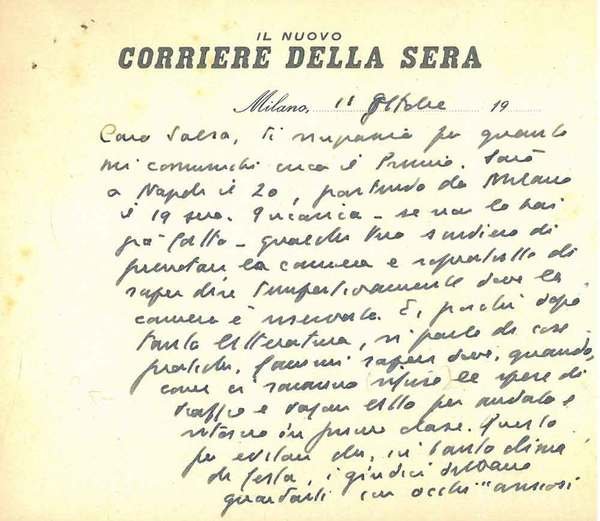 IL NUOVO
CORRIERE DELLA SERA
Milano, 11 Ottobre 19
Caro Salsa, ti ringrazio per quanto
mi comunichi circa il Premio. Sarò
a Napoli il 20, partendo da Milano
il 19 sera. Incarica - se non lo hai
già fatto - qualche tuo di
prenotare la camera e soprattutto di
saper dire tempestivamente dove la
camera è riservata. E, poichè dopo
tanta letteratura, si parla di cose
pratiche, fammi sapere dove, quando,
come ci saranno rifuse le spese di
viaggio e vagone letto per andata e
ritorno in prima classe. Questo
per evitare che, in tanto clima
di festa, i giudici debbano
guardarti con occhi "ansiosi